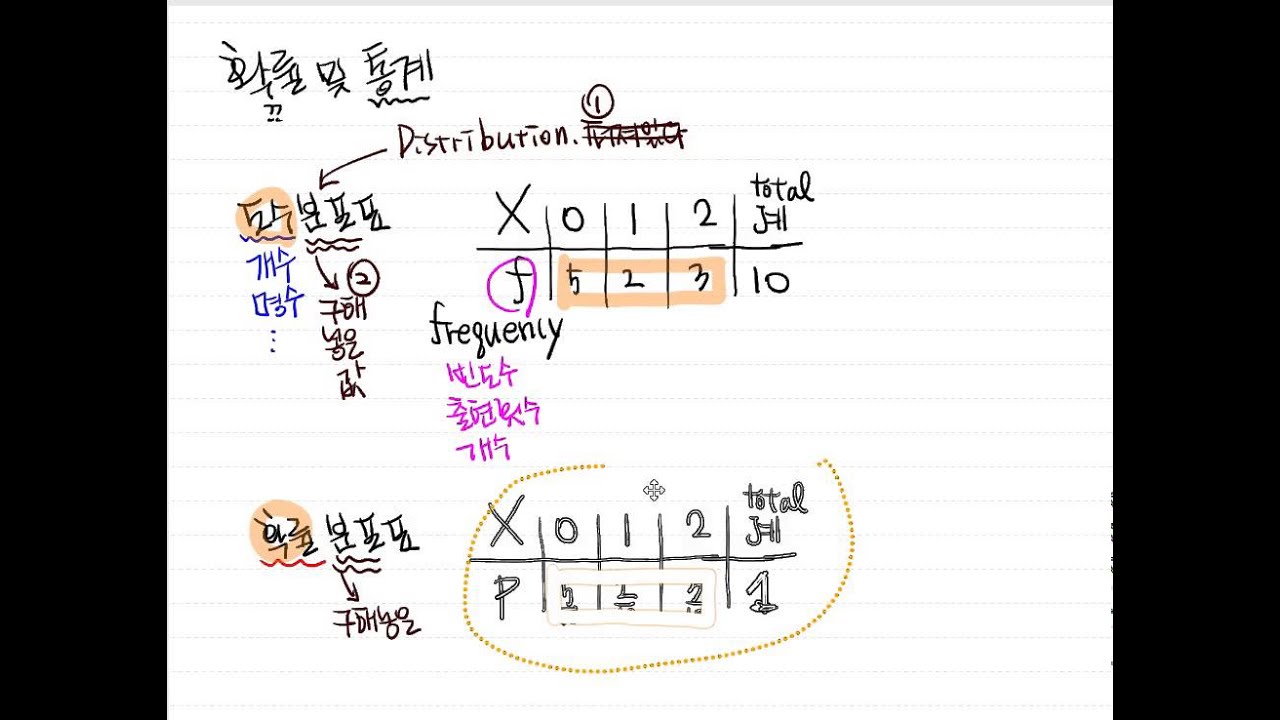 확률 및 통계
Distribution. ①
도수분포표
개수
명수
⋮
②
구해
넣은
값
X 0 1 2 total 계
f 5 2 3 10
frequency
빈도수
출현횟수
개수
확률 분포표
구해넣은
X 0 1 2 total 계
P 1